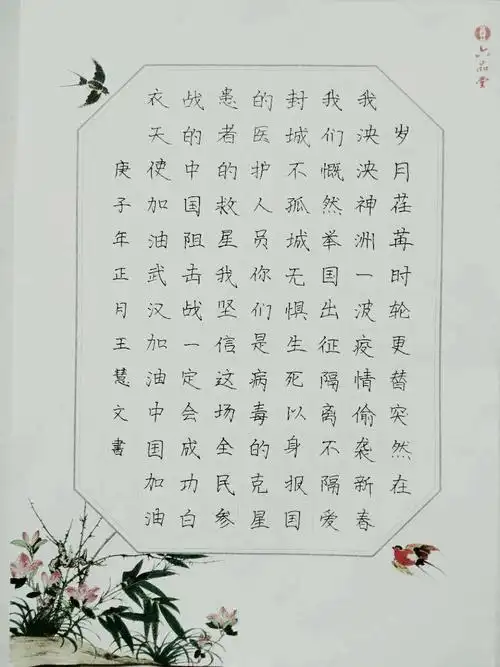 六品堂
岁月荏苒时轮更替突然在
我泱泱神洲一波疫情偷袭新春
我们慨然举国出征隔离不隔爱
封城不孤城无惧生死以身报国
的医护人员你们是病毒的克星
患者的救星我坚信这场全民参
战的中国阻击战一定会成功白
衣天使加油武汉加油中国加油
庚子年正月王慧文书